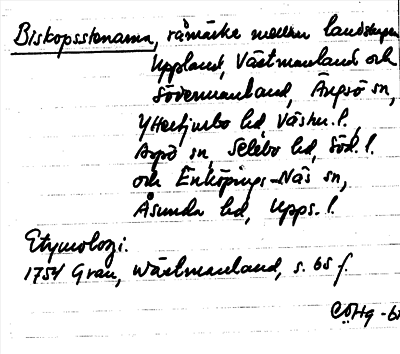 Biskopsstenarna, råmärke mellan landskapen
Uppland, Västmanland och
Södermanland, Ängsö sn,
Yttertjurbo hd, Västm. l.,
Aspö sn, Selebo hd, Söd. l.
och Enköpings-Näs sn,
Åsunda hd, Upps. l.
Etymologi.
1754 Grau, Wästmanland, s. 65 f.
CÖHg